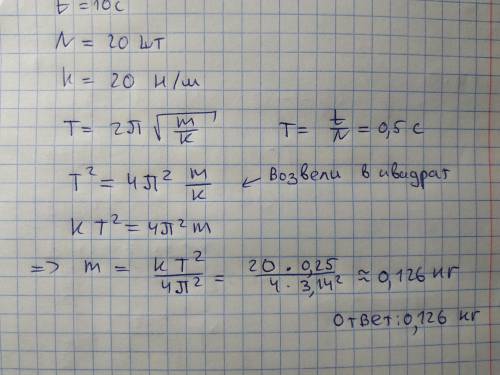 t = 10 с
N = 20 шт
k = 20 н/м
T = 2π √(m/k)    T = t/N = 0,5 с
T² = 4π² m/k ← возвели в квадрат
K T² = 4π² m
=> m = K T²/4π² = 20 · 0,25/4 · 3,14² ≈ 0,126 кг
Ответ: 0,126 кг